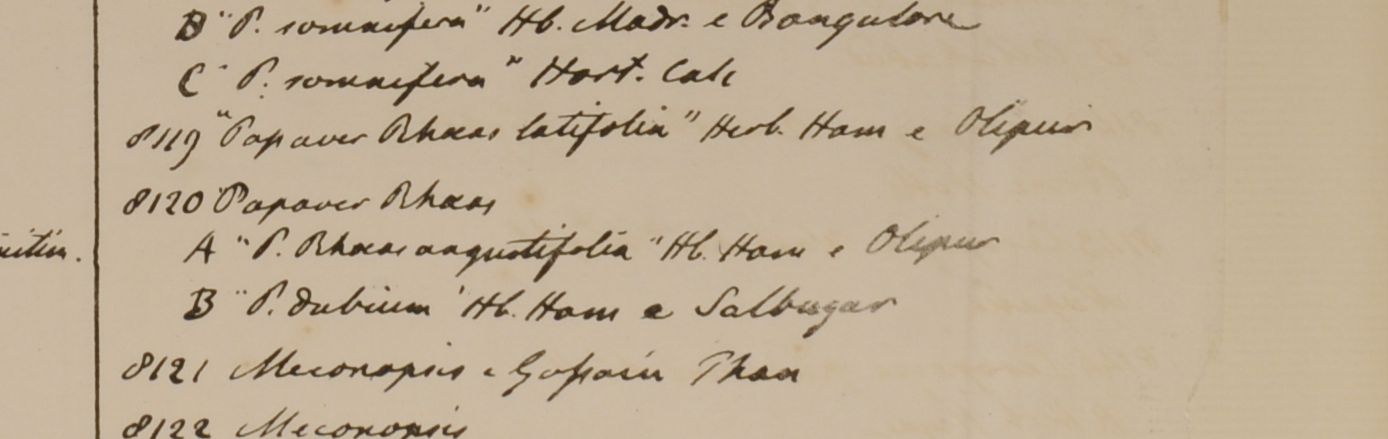 B "P. somnifera" Hb. Madr. e Bangulore
C "P. somnifera" Hort. Calc
8119 "Papaver Rhæas latifolia" Herb. Ham e Olipur
8120 Papaver Rhæas
A "P. Rhæas angustifolia" Hb. Ham e Olipur
B "P. dubium" Hb. Ham e Salbugar
8121 Meconopsis e Gossain Than
8122 Meconopsis